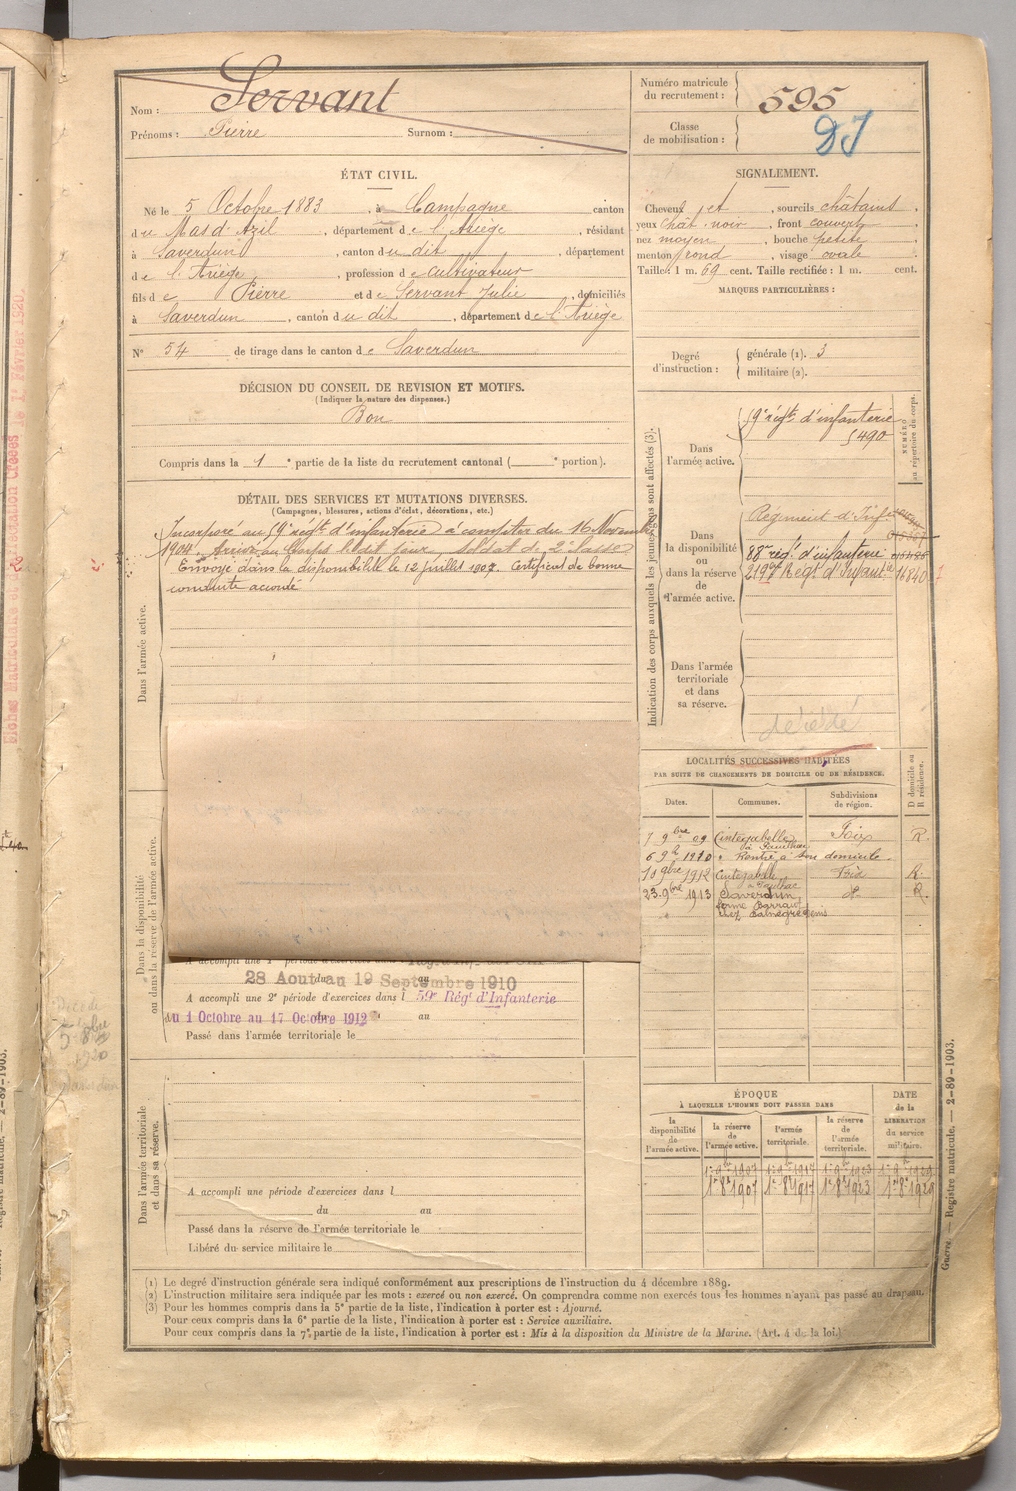 Nom : Servant
Prénoms : Pierre Surnom :
Numéro matricule du recrutement : 595
Classe de mobilisation :
DJ
ÉTAT CIVIL.
Né le 5 Octobre 1883, à Campagne canton
du Mas d'Azil, département de l'Ariège, résidant
à Saverdun, canton du dit, département
de l'Ariège, profession de cultivateur
fils de Pierre et de Servant Julie, domiciliés
à Saverdun, canton du dit, département de l'Ariège
N° 54 de tirage dans le canton de Saverdun
SIGNALEMENT.
Cheveux et, sourcils châtains,
yeux chât. noir, front couvert,
nez moyen, bouche petite,
menton rond, visage ovale
Taille : 1 m. 69 cent. Taille rectifiée : 1 m. cent.
MARQUES PARTICULIÈRES :
Degré d'instruction : générale (1). 3
militaire (2).
DÉCISION DU CONSEIL DE REVISION ET MOTIFS.
(Indiquer la nature des dispenses.)
Bon
Compris dans la 1e partie de la liste du recrutement cantonal ( e portion).
DÉTAIL DES SERVICES ET MUTATIONS DIVERSES.
(Campagnes, blessures, actions d'éclat, décorations, etc.)
Incorporé au 9e régt d'infanterie à compter du 16 Novembre
1904. Arrivé au Corps le dit jour, soldat de 2e classe
Envoyé dans la disponibilité le 12 juillet 1907. Certificat de bonne
conduite accordé
Dans l'armée active.
Dans la disponibilité ou dans la réserve de l'armée active.
28 Aout au 19 Septembre 1910
A accompli une 2e période d'exercices dans l 59e Régt d'Infanterie
du 1 Octobre au 17 Octobre 1912 au
Passé dans l'armée territoriale le
Dans l'armée territoriale et dans sa réserve.
A accompli une période d'exercices dans l
du au
Passé dans la réserve de l'armée territoriale le
Libéré du service militaire le
Indication des corps auxquels les jeunes gens sont affectés (3).
NUMÉRO au répertoire du corps.
Dans l'armée active.
9e régt d'infanterie
5490
Dans la disponibilité ou dans la réserve de l'armée active.
Régiment d'Inf.
88e régt d'infanterie
219e Régt d'Infantie 16840
Dans l'armée territoriale et dans sa réserve.
décédé
LOCALITÉS SUCCESSIVES HABITÉES
PAR SUITE DE CHANGEMENTS DE DOMICILE OU DE RÉSIDENCE.
Dates. Communes. Subdivisions de région. D domicile ou R résidence.
7 9bre 09 Cintegabelle Foix R.
1910 " Rentré à son domicile.
1912 Cintegabelle R.
23 9bre 1913 Saverdun R
ÉPOQUE
À LAQUELLE L'HOMME DOIT PASSER DANS
la disponibilité de l'armée active. la réserve de l'armée active. l'armée territoriale. la réserve de l'armée territoriale. DATE de la LIBÉRATION du service militaire.
1er 9bre 1907 1er 9bre 1917 1er 9bre 1923 1er 9bre 1929
1er 8bre 1907 1er 8bre 1917 1er 8bre 1923 1er 8bre 1929
(1) Le degré d'instruction générale sera indiqué conformément aux prescriptions de l'instruction du 4 décembre 1889.
(2) L'instruction militaire sera indiquée par les mots : exercé ou non exercé. On comprendra comme non exercés tous les hommes n'ayant pas passé au drapeau.
(3) Pour les hommes compris dans la 5e partie de la liste, l'indication à porter est : Ajourné.
Pour ceux compris dans la 6e partie de la liste, l'indication à porter est : Service auxiliaire.
Pour ceux compris dans la 7e partie de la liste, l'indication à porter est : Mis à la disposition du Ministre de la Marine. (Art. 4 de la loi.)
Guerre. — Registre matricule. — 2-89-1903.